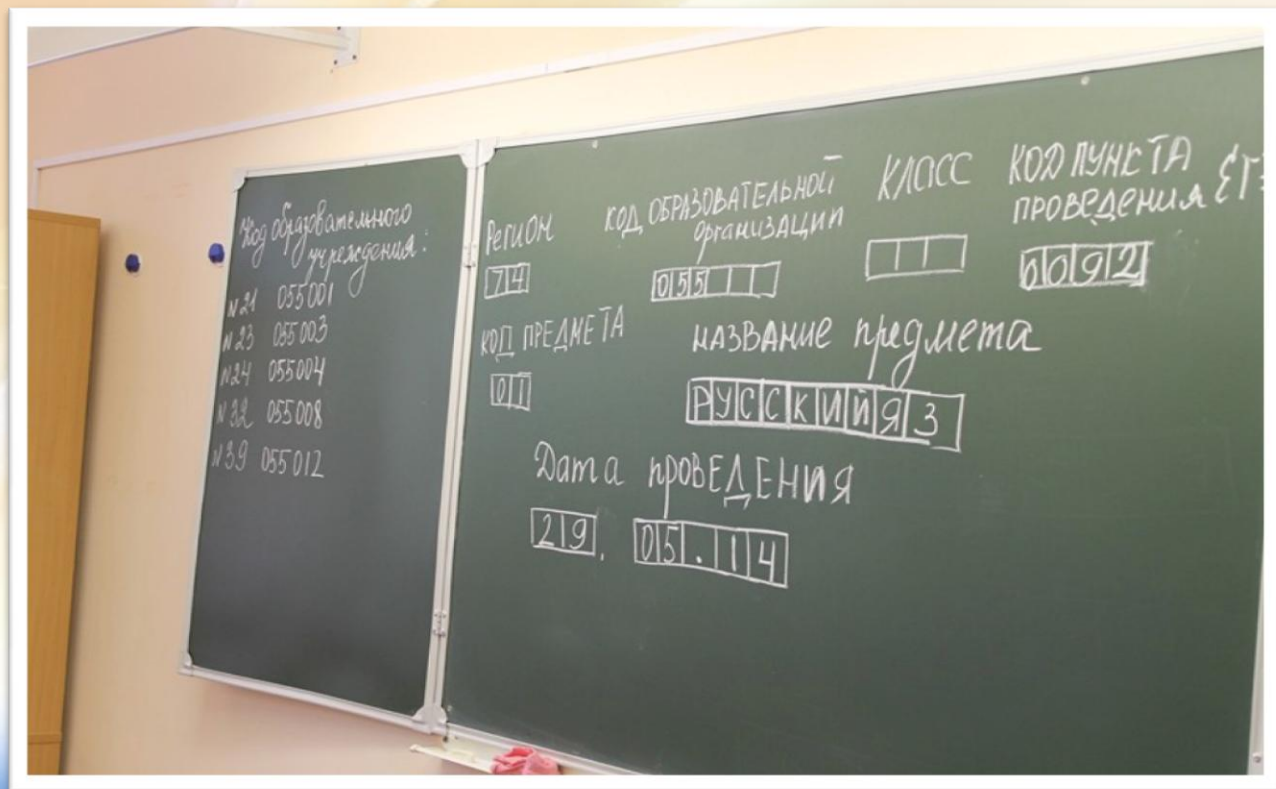 Код образовательного
учреждения:
N21 055001
N23 055003
N24 055004
N32 055008
N39 055012
Регион
74
КОД ОБРАЗОВАТЕЛЬНОЙ
организации
055
КЛАСС
КОД ПУНКТА
ПРОВЕДЕНИЯ ЕГЭ
0092
КОД ПРЕДМЕТА
01
НАЗВАНИЕ предмета
РУССКИЙ ЯЗ
Дата проведения
29. 05.14